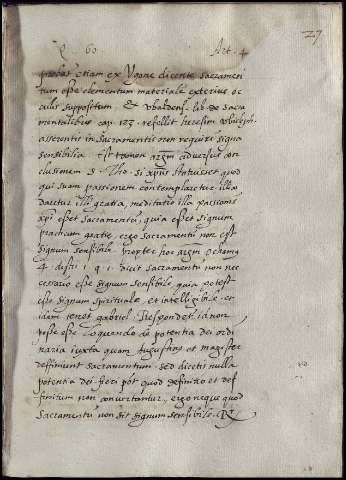 Q. 60. Art. 4
27
probat etiam ex Vgone dicente sacramen
tum esse elementum materiale exterius oc
ulis suppositum. & Vbaldens. lib. de sacra
mentalibus cap. 123. refellit heresim
asserentis in sacramentis non requiri signa
sensibilia. Est tamen argm adversus con
clusionem S. Tho. si xpus statuisset quod
qui suam passionem contemplaretur illa
daretur illi gratia, meditatio illa passionis
xpi esset sacramentũ, quia esset signum
practicum gratie, ergo sacramentũ non est
signum sensibile. propter hoc argm
4. distin. 1. q. 1. dicit sacramentũ non ne
cessario esse signum sensibile, quia potest
esse signum spirituale et intelligibile.
idem tenet gabriel. Respondet. id non
posse esse loquendo de potentia dei ordi
naria iuxta quam Augustinus et magister
deffiniunt sacramentum. sed dicetis nulla
potentia dei fieri pot quod definitio et def
finitum non convertantur, ergo neque quod
sacramentũ non sit signum sensibile. R.